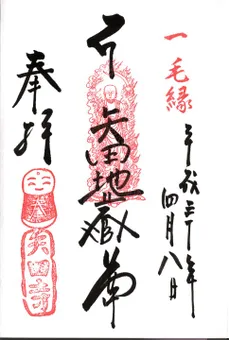 一毛縁
平成三十年
四月八日
矢田地蔵尊
奉拝
矢田寺